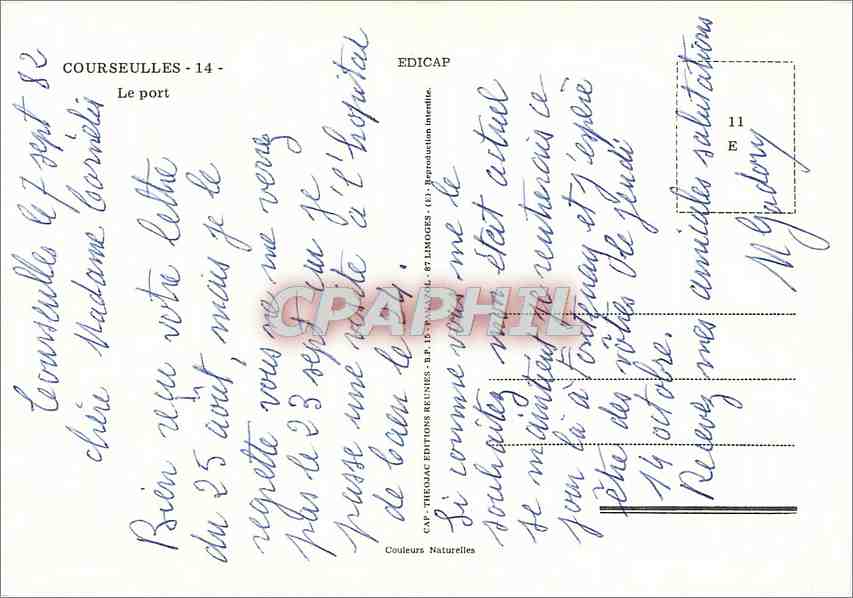 COURSEULLES - 14 -
Le port
EDICAP
11
E
CAP - THEOJAC EDITIONS REUNIES - B.P. 15 - PANAZOL - 87 LIMOGES - (E) - Reproduction interdite.
Couleurs Naturelles
CPAPHIL
Courseulles le 7 sept 82
chère Madame Cornelis
Bien reçu votre lettre
du 25 août, mais je le
regrette vous ne me verrez
pas le 23 sept car je
passe une visite à l'hopital
de Caen le 24.
Si comme vous me le
souhaitez mon état actuel
se maintient je rentrerais ce
jour là à Fontenay et j'espère
être des vôtres le jeudi
14 octobre.
Recevez mes amicales salutations
M